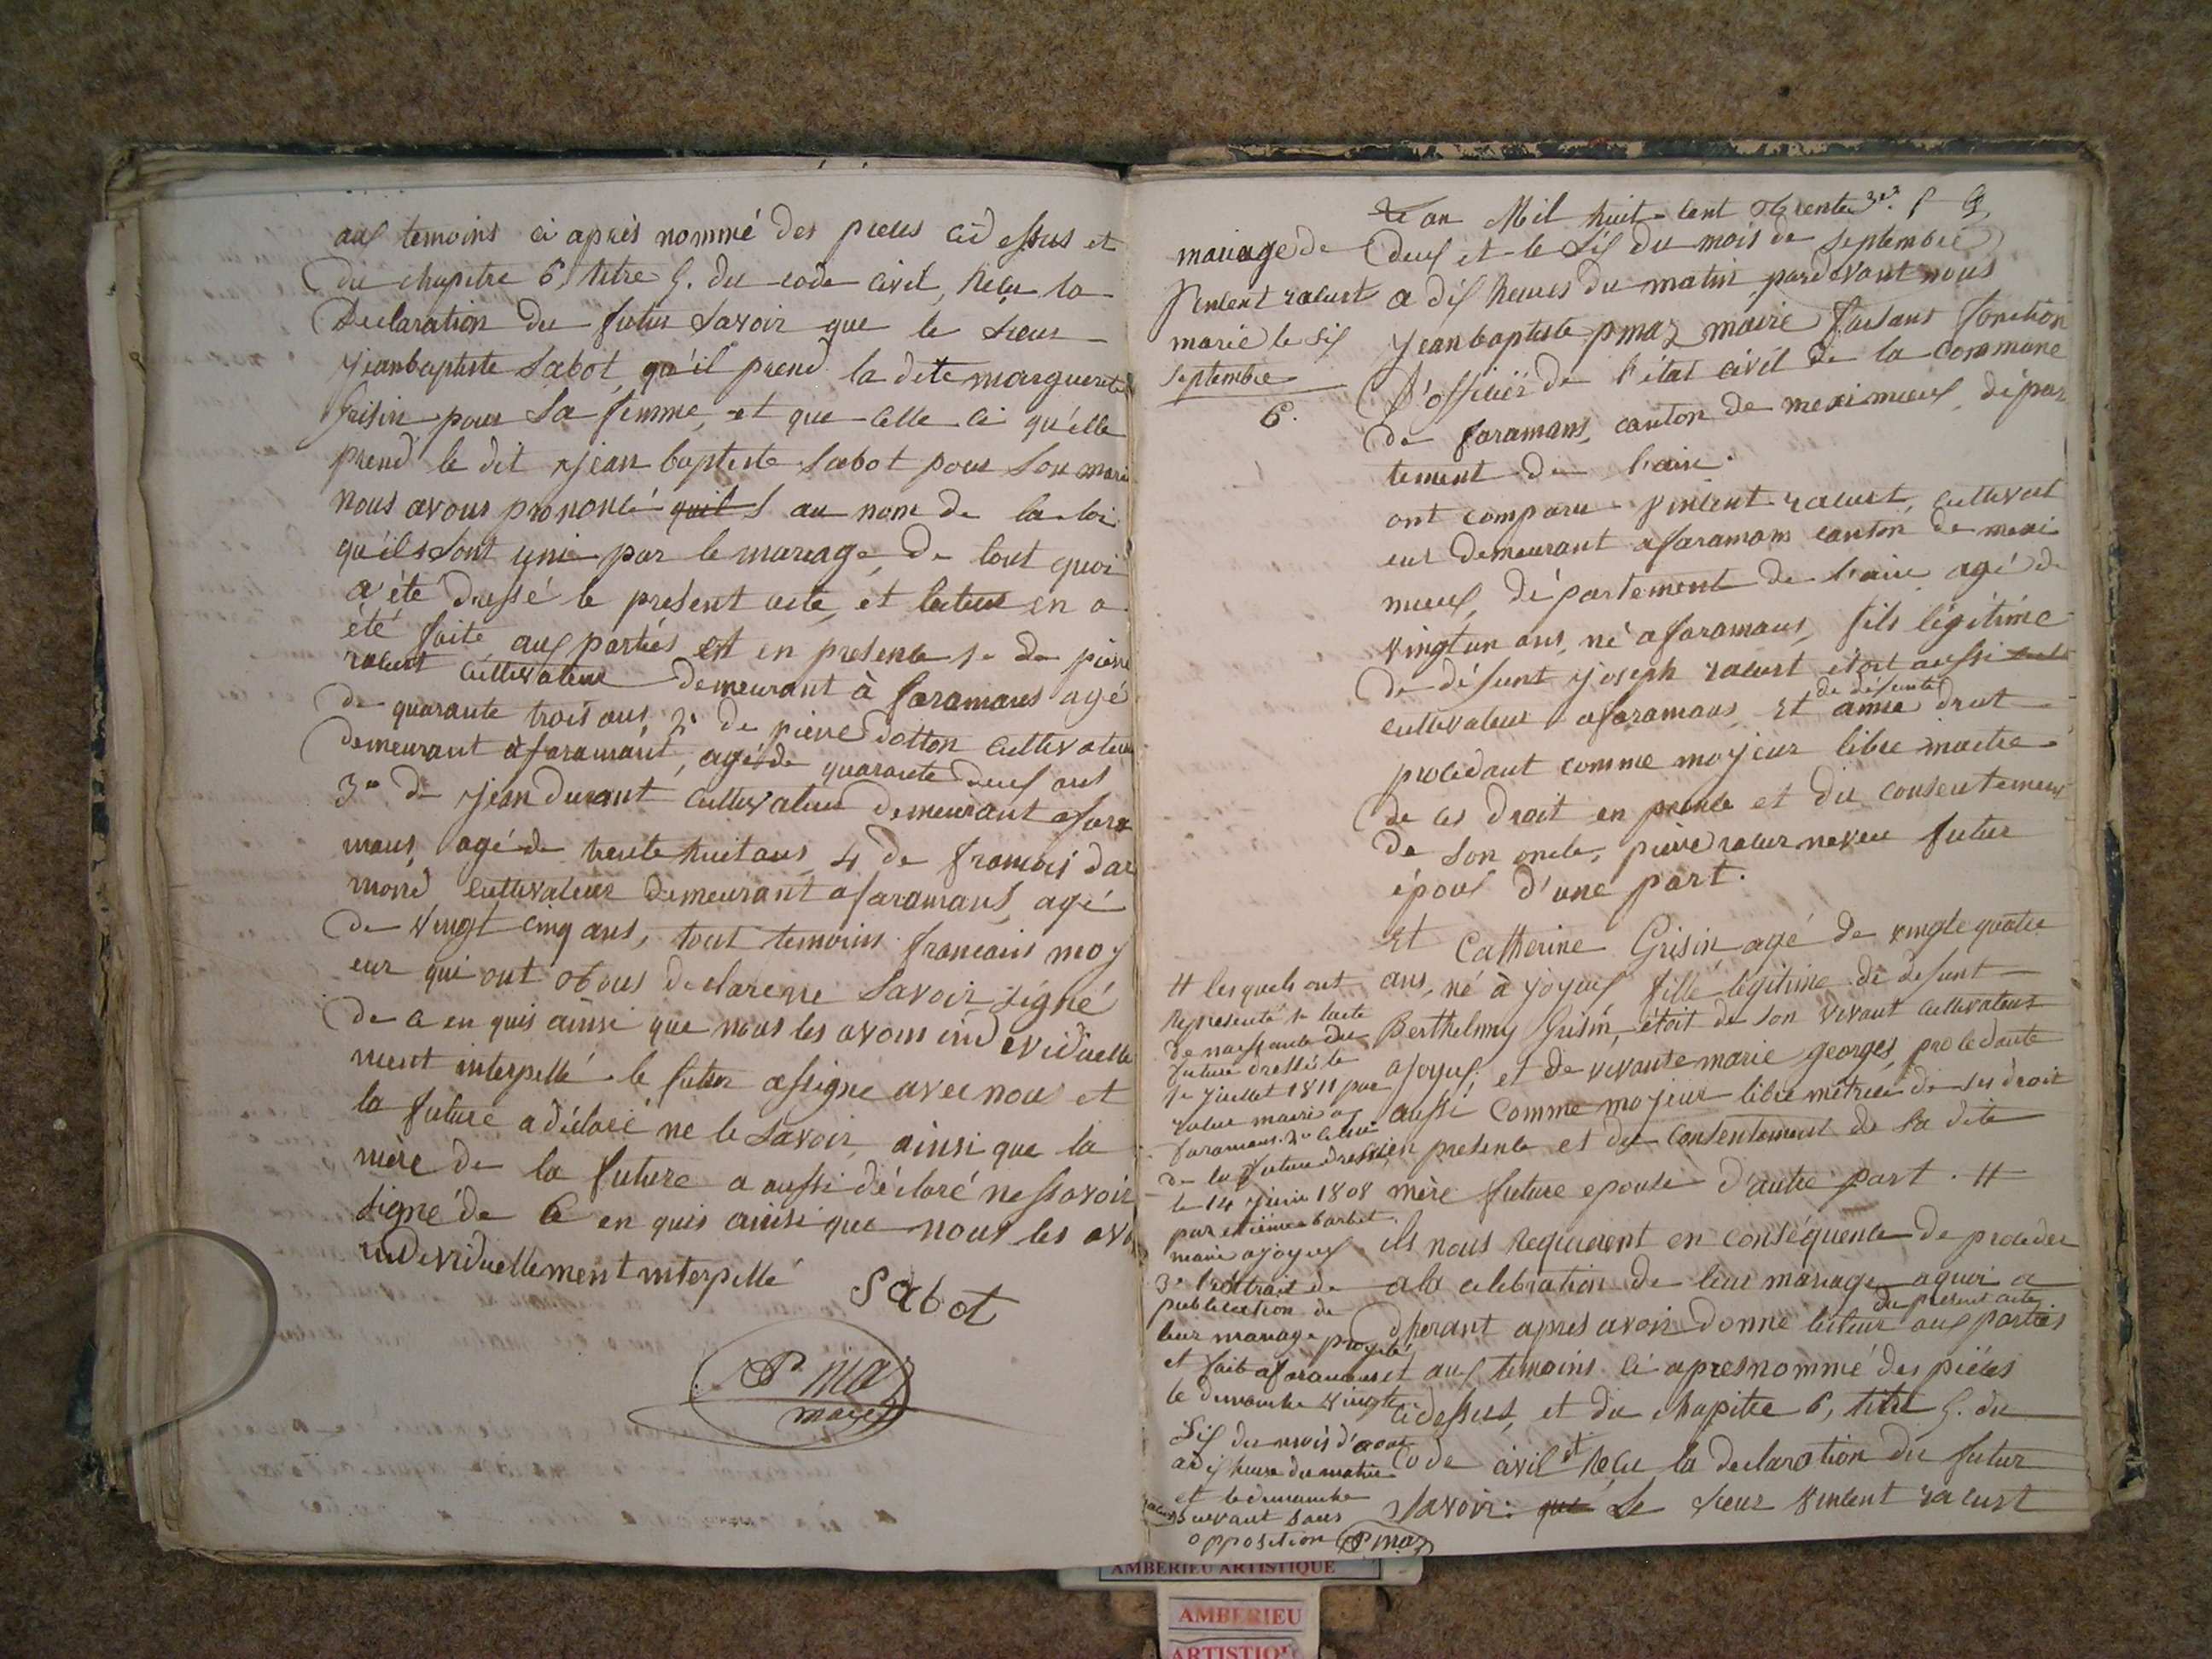 aux temoins ci après nommé des pieces ci dessus et
du chapitre 6 titre 5. du code civil, Reçu la
Declaration du futur Savoir que le sieur
jeanbaptiste Sabot, qu'il prend la dite marguerite
Grisin pour Sa femme, et que celle ci qu'elle
prend le dit jean baptiste Sabot pour Son mari
nous avons prononcé au nom de la loi
qu'ils sont unie par le mariage, De tout quoi
a été dressé le présent acte, et lecture en a
été faite aux parties est en presence 1e de pierre
racurt cultivateur demeurant à faramans agé
de quarante trois ans, 2e de pierre dotton cultivateur
demeurant à faramant, agé de quarante deux ans
3e de jean durant cultivateur demeurant a fara
mans, agé de trente huit ans 4 de francois dar
mond cultivateur demeurant a faramans, agé
de vingt cinq ans, tout temoins francais moj
eur qui ont tous declarerre Savoir signé
de ce en quis ainsi que nous les avons individuelle
ment interpellé le futur assigne avec nous et
la future a déclaré ne le Savoir, ainsi que la
mère de la future a aussi déclaré ne ssavoir
signé de ce en quis ainsi que nous les avo
individuellement interpellé
Sabot
P maz
maire
mariage de
vincent racurt
marié le six
septembre
6.
L'an Mil huit cent trente
deux et le six du mois de septembre
a dix heures du matin pardevant nous
jeanbaptiste pmaz maire faisant fonction
D'officier de l'état civil de la commune
de faramans, canton de meximieux, dépar
tement de l'ain.
ont comparu vincent racurt, cultivat
eur demeurant a faramans canton de mexi
mieux, département de l'ain agé de
vingt un ans, né a faramans, fils légitime
de défunt joseph racurt étoit aussi
de défunte
cultivateur a faramans, Et drut
procédant comme mojeur libre maitre
de ces droit en presence et du consentement
de son oncle, pierre racur neveu futur
époux d'une part.
Et Catherine Grisin agé de vingte quatre
ans, né à joyeux fille légitime de defunt
Berthelmy Grisin, étoit de son vivant cultivateur
a joyeux, et de vivante marie georges, procedante
aussi comme mojeur libre métrise de ses droit
en presence et du consentement de sa dite
mère future epouse d'autre part. #
ils nous requierent en conséquence de proceder
a la celebration de leur mariage a quoi a
du present acte
dherant apres avoir donné lecture aux parties
et aux temoins ci apresnommé des piéces
ci dessus, et du chapitre 6, titre 5. du
code civil et Reçu la declaration du futur
Savoir: que le sieur vincent racurt
# lesquels ont
Representé 1e lacte
de naissance du
futur dressé le
1e juillet 1811 par
racur maire a
faramans. 2e celui
de la future dressé
le 14 juin 1808
par etienne barbet
maire a joyeux
3e l'extrait de
publication de
leur mariage projeté
et fait a faramans
le dimanche vingt
six du mois d'aout
a dix heure du matin
et le dimanche
suivant sans
opposition P maz
AMBERIEU ARTISTIQUE
AMBERIEU
ARTISTIQUE